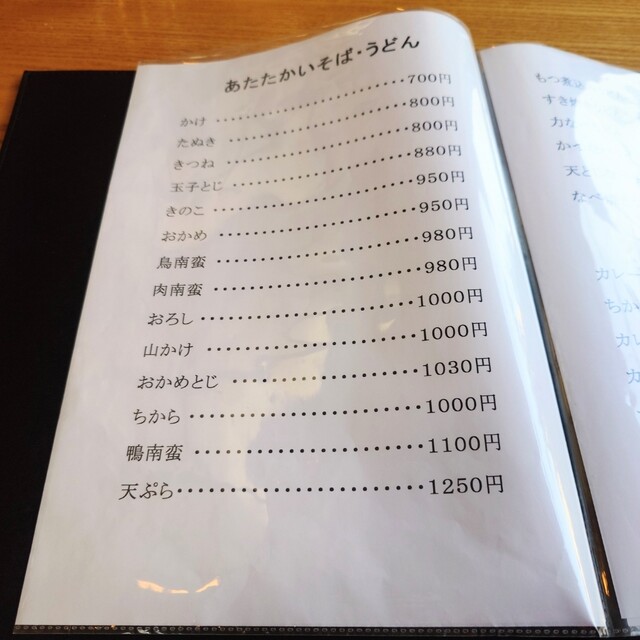 あたたかいそば・うどん
かけ・・・・・・・・・・・・・・・・・・・・700円
たぬき・・・・・・・・・・・・・・・・・・・800円
きつね・・・・・・・・・・・・・・・・・・・800円
玉子とじ・・・・・・・・・・・・・・・・・・880円
きのこ・・・・・・・・・・・・・・・・・・・950円
おかめ・・・・・・・・・・・・・・・・・・・950円
鳥南蛮・・・・・・・・・・・・・・・・・・・980円
肉南蛮・・・・・・・・・・・・・・・・・・・980円
おろし・・・・・・・・・・・・・・・・・・・1000円
山かけ・・・・・・・・・・・・・・・・・・・1000円
おかめとじ・・・・・・・・・・・・・・・・・1030円
ちから・・・・・・・・・・・・・・・・・・・1000円
鴨南蛮・・・・・・・・・・・・・・・・・・・1100円
天ぷら・・・・・・・・・・・・・・・・・・・1250円
もつ煮込
すき
力な
か
天と
なべ
カレー
ちか
カレ
カ